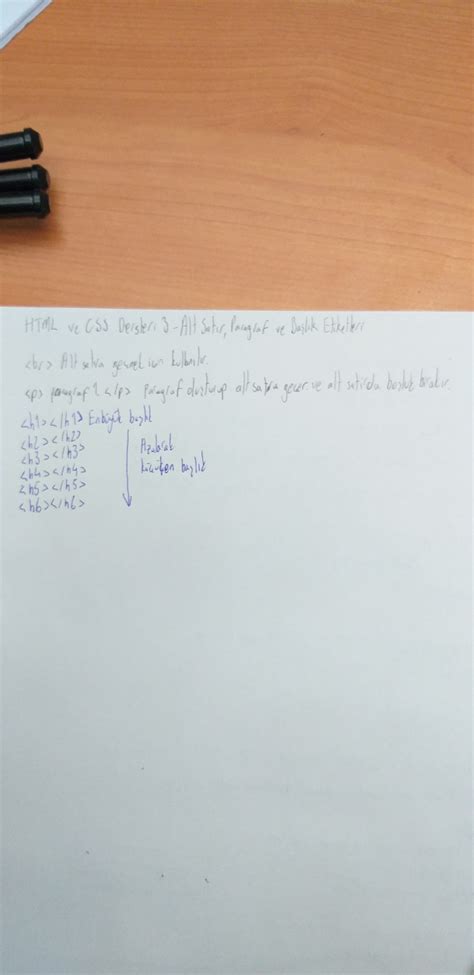 HTML ve CSS Dersleri 3 - Alt Satır, Paragraf ve Başlık Etiketleri
<br> Alt satıra geçmek için kullanılır.
<p> paragraf 1 </p> paragraf oluşturup alt satıra geçer ve alt satırda boşluk bırakır.
<h1></h1> En büyük başlık
<h2></h2>
<h3></h3> Azalarak
<h4></h4> küçülen başlık
<h5></h5>
<h6></h6>